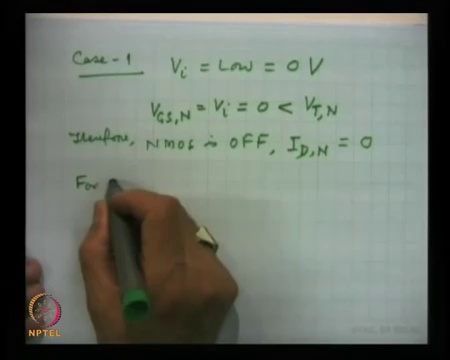 Case-1 Vi = Low = 0 V
VGS,N = Vi = 0 < VT,N
Therefore, NMOS is OFF, ID,N = 0
For
NPTEL